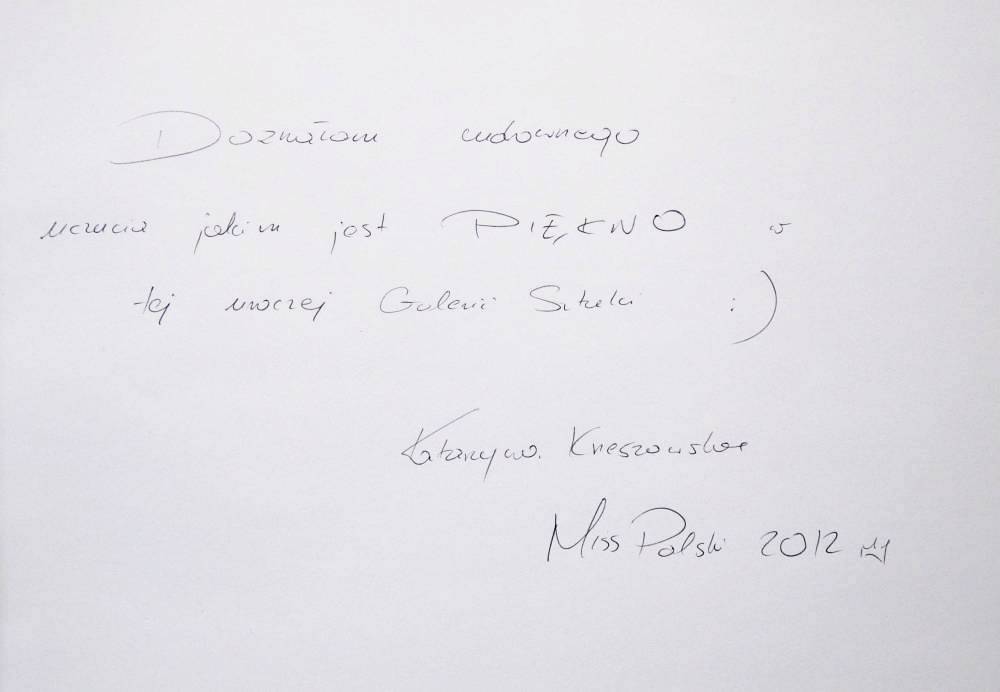 Doznałam cudownego
uczucia jakim jest PIĘKNO w
tej uroczej Galerii Sztuki :)
Katarzyna Krzeszowska
Miss Polski 2012